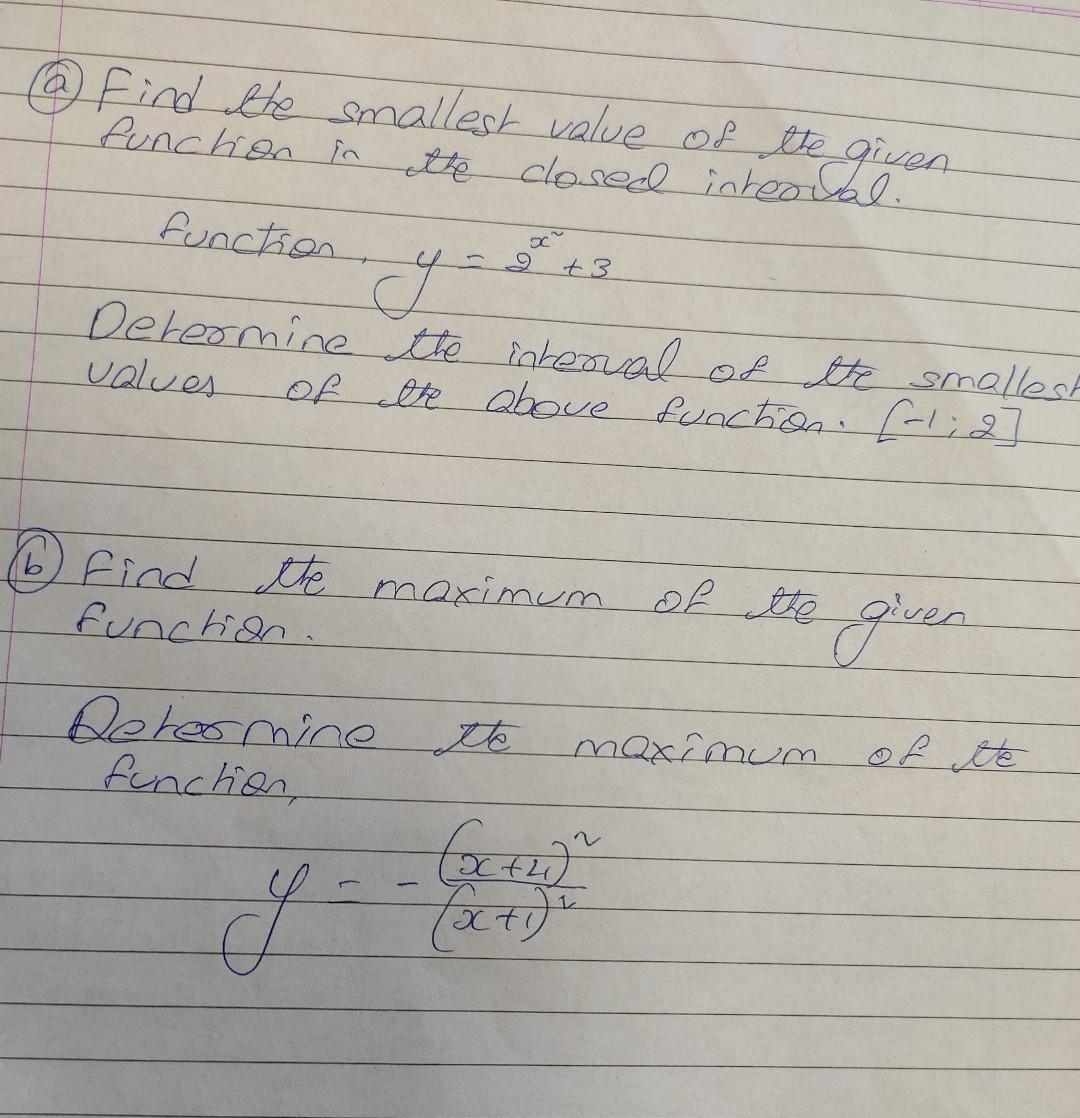 (a) Find the smallest value of the given
function in the closed interval.
function, y = 2^x^2 + 3
Determine the interval of the smallest
values of the above function. [-1; 2]
(b) Find the maximum of the given
function.
Determine the maximum of the
function,
y = - (x+4)^2 / (x+1)^2